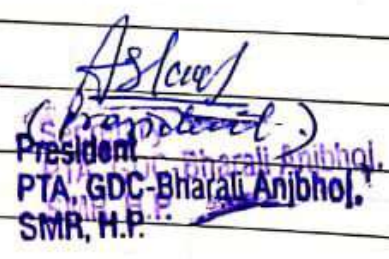 (President.)
President
PTA, GDC-Bharali Anjbhoj.
SMR, H.P.